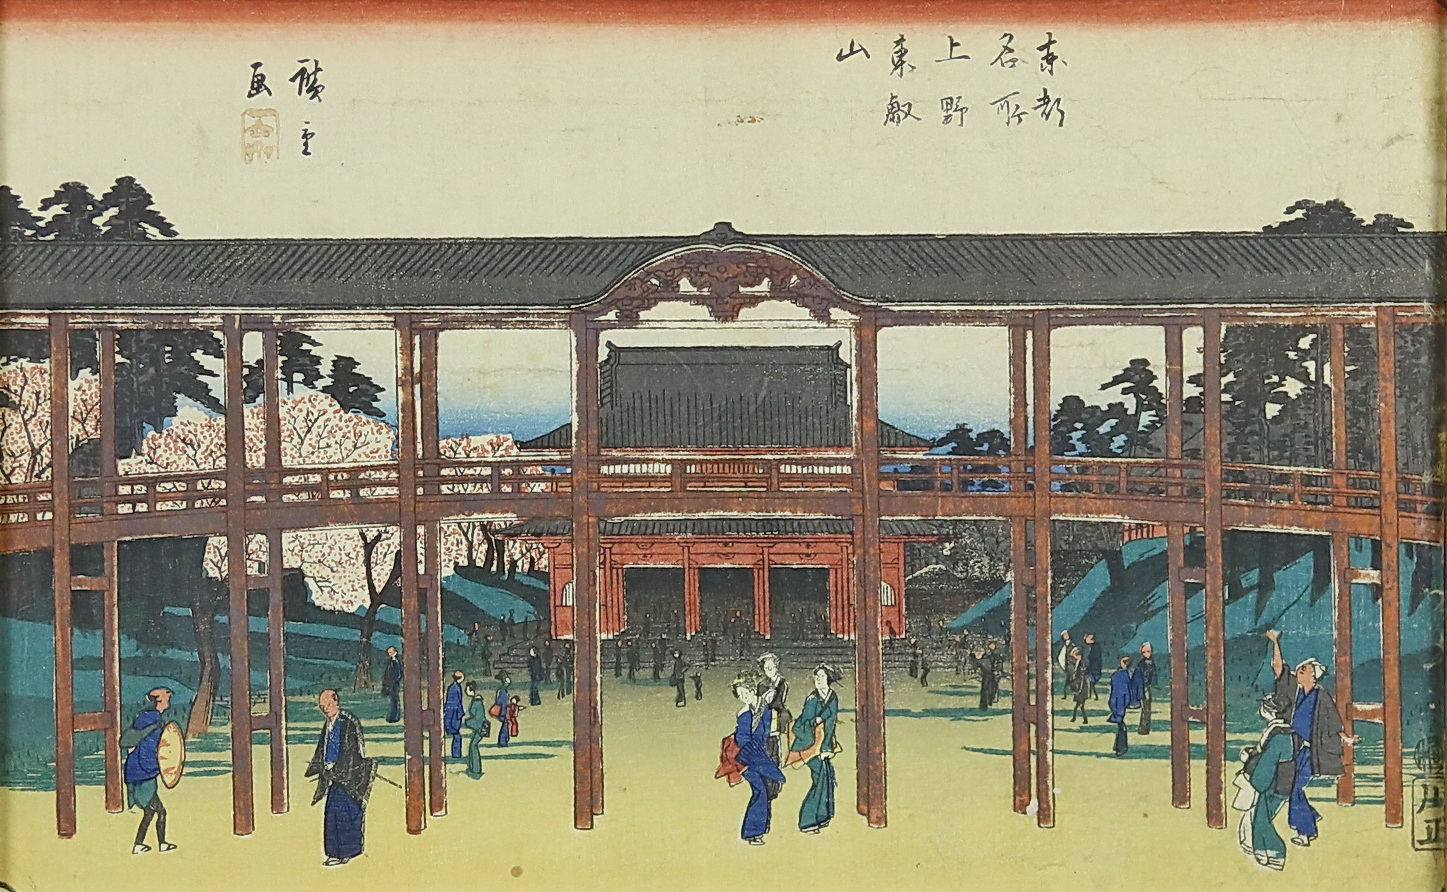 東都
名所
上野
東叡
山
廣重
画
川正